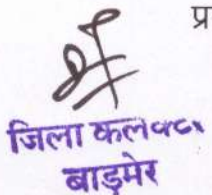 प्र
जिला कलक्टर
बाड़मेर